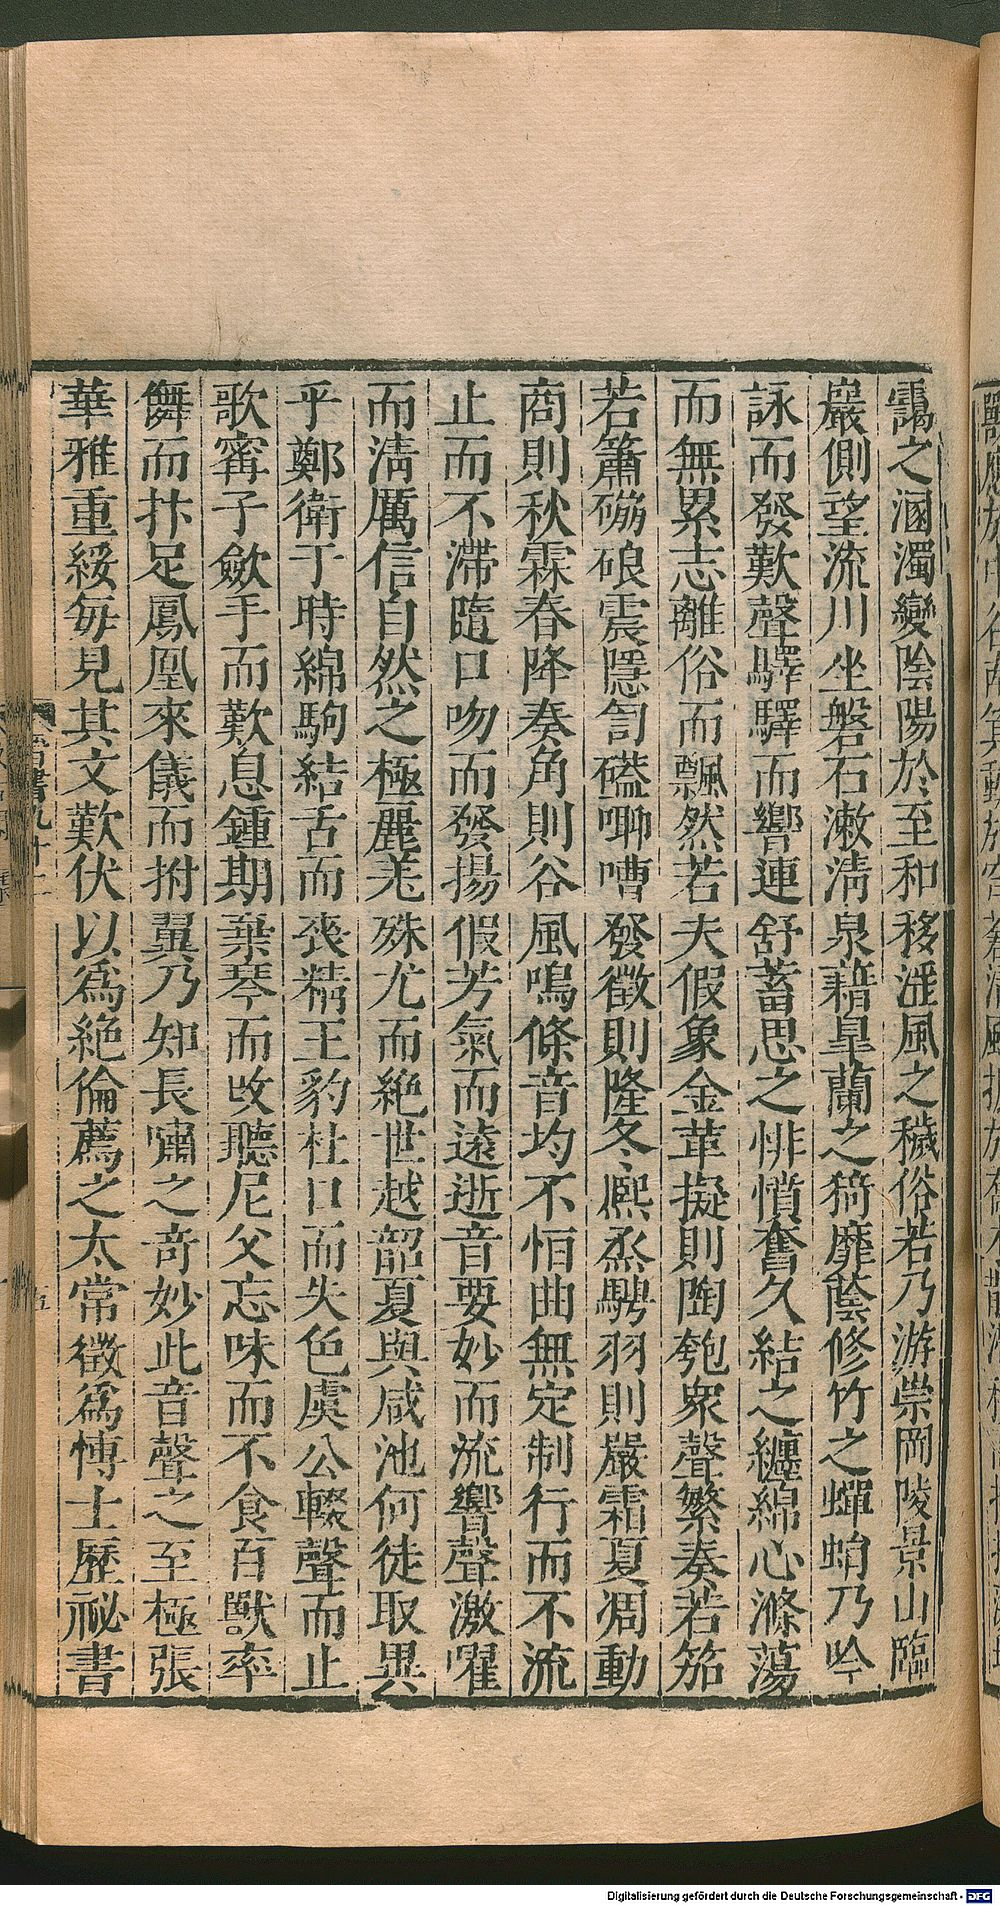 靄之溷濁變陰陽於至和移淫風之穢俗若乃游崇岡陵景山臨
巖側望流川坐磐石漱清泉藉皐蘭之猗靡蔭修竹之蟬蛸乃吟
詠而發歎聲驛驛而響連舒蓄思之悱憤奮久結之纏綿心滌蕩
而無累志離俗而飄然若夫假象金革擬則陶匏衆聲繁奏若笳
若簫磞硠震隱訇礚㗦嘈發徵則隆冬熈烝騁羽則嚴霜夏凋動
商則秋霖春降奏角則谷風鳴條音均不恒曲無定制行而不流
止而不滯隨口吻而發揚假芳氣而遠逝音要妙而流響聲激曜
而淸厲信自然之極麗羌殊尤而絶世越韶夏與咸池何徒取異
乎鄭衛于時綿駒結舌而喪精王豹杜口而失色虞公輟聲而止
歌甯子斂手而歎息鍾期棄琴而改聽尼父忘味而不食百獸率
儛而抃足鳳凰來儀而拊翼乃知長嘯之奇妙此音聲之至極張
華雅重綏每見其文歎伏以爲絶倫薦之太常徵爲博士歷祕書
晉書九十二
五
Digitalisierung gefördert durch die Deutsche Forschungsgemeinschaft - DFG